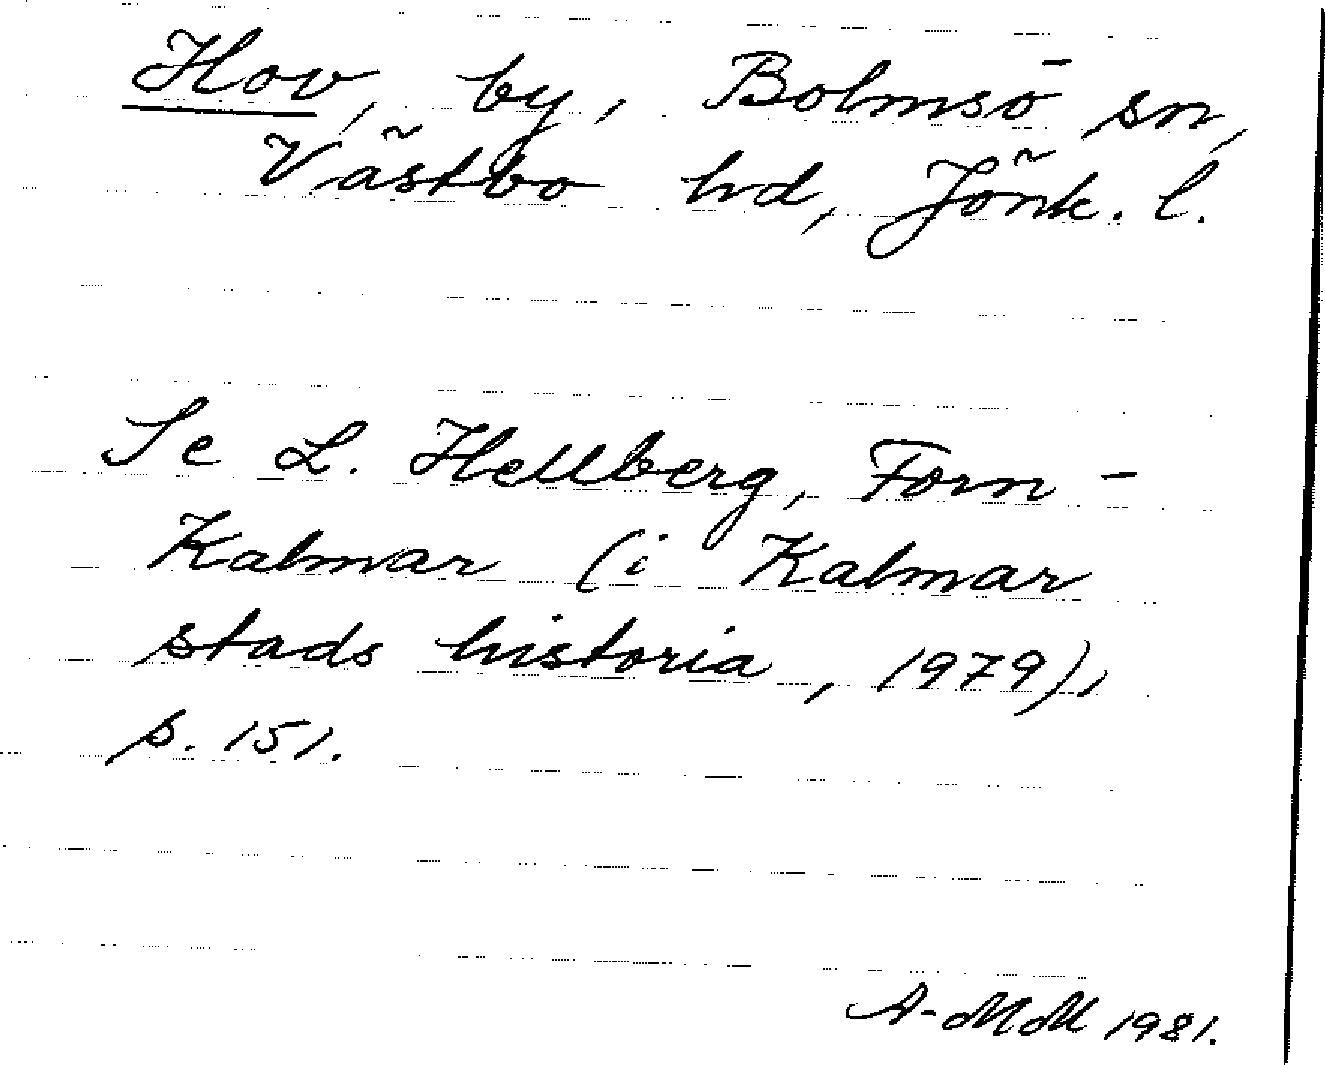 Hov, by, Bolmsö sn,
Västbo hd, Jönk. l.
Se L. Hellberg, Forn-
Kalmar (i Kalmar
stads historia, 1979),
s. 151.
A-MM 1981.